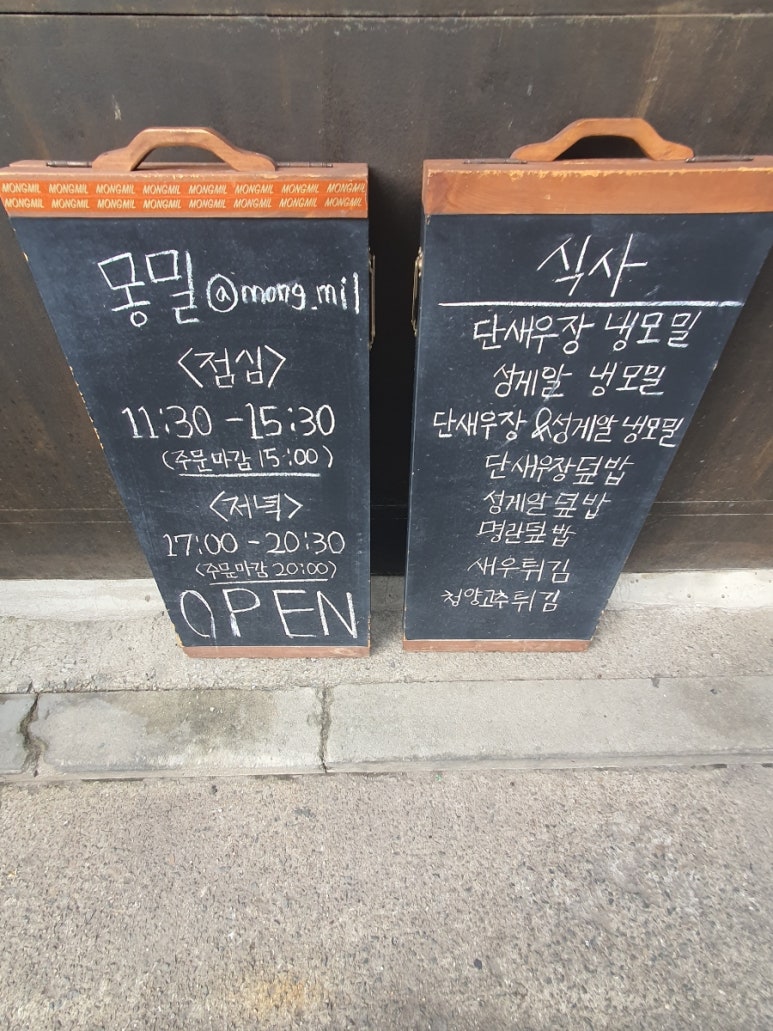 MONGMIL MONGMIL MONGMIL MONGMIL MONGMIL MONGMIL MONGMIL MONGMIL
MONGMIL MONGMIL MONGMIL MONGMIL MONGMIL MONGMIL MONGMIL MONGMIL
몽밀 @mong_mil
<점심>
11:30 - 15:30
(주문마감 15:00)
<저녁>
17:00 - 20:30
(주문마감 20:00)
OPEN
식사
단새우장 냉모밀
성게알 냉모밀
단새우장 & 성게알 냉모밀
단새우장덮밥
성게알덮밥
명란덮밥
새우튀김
청양고추튀김